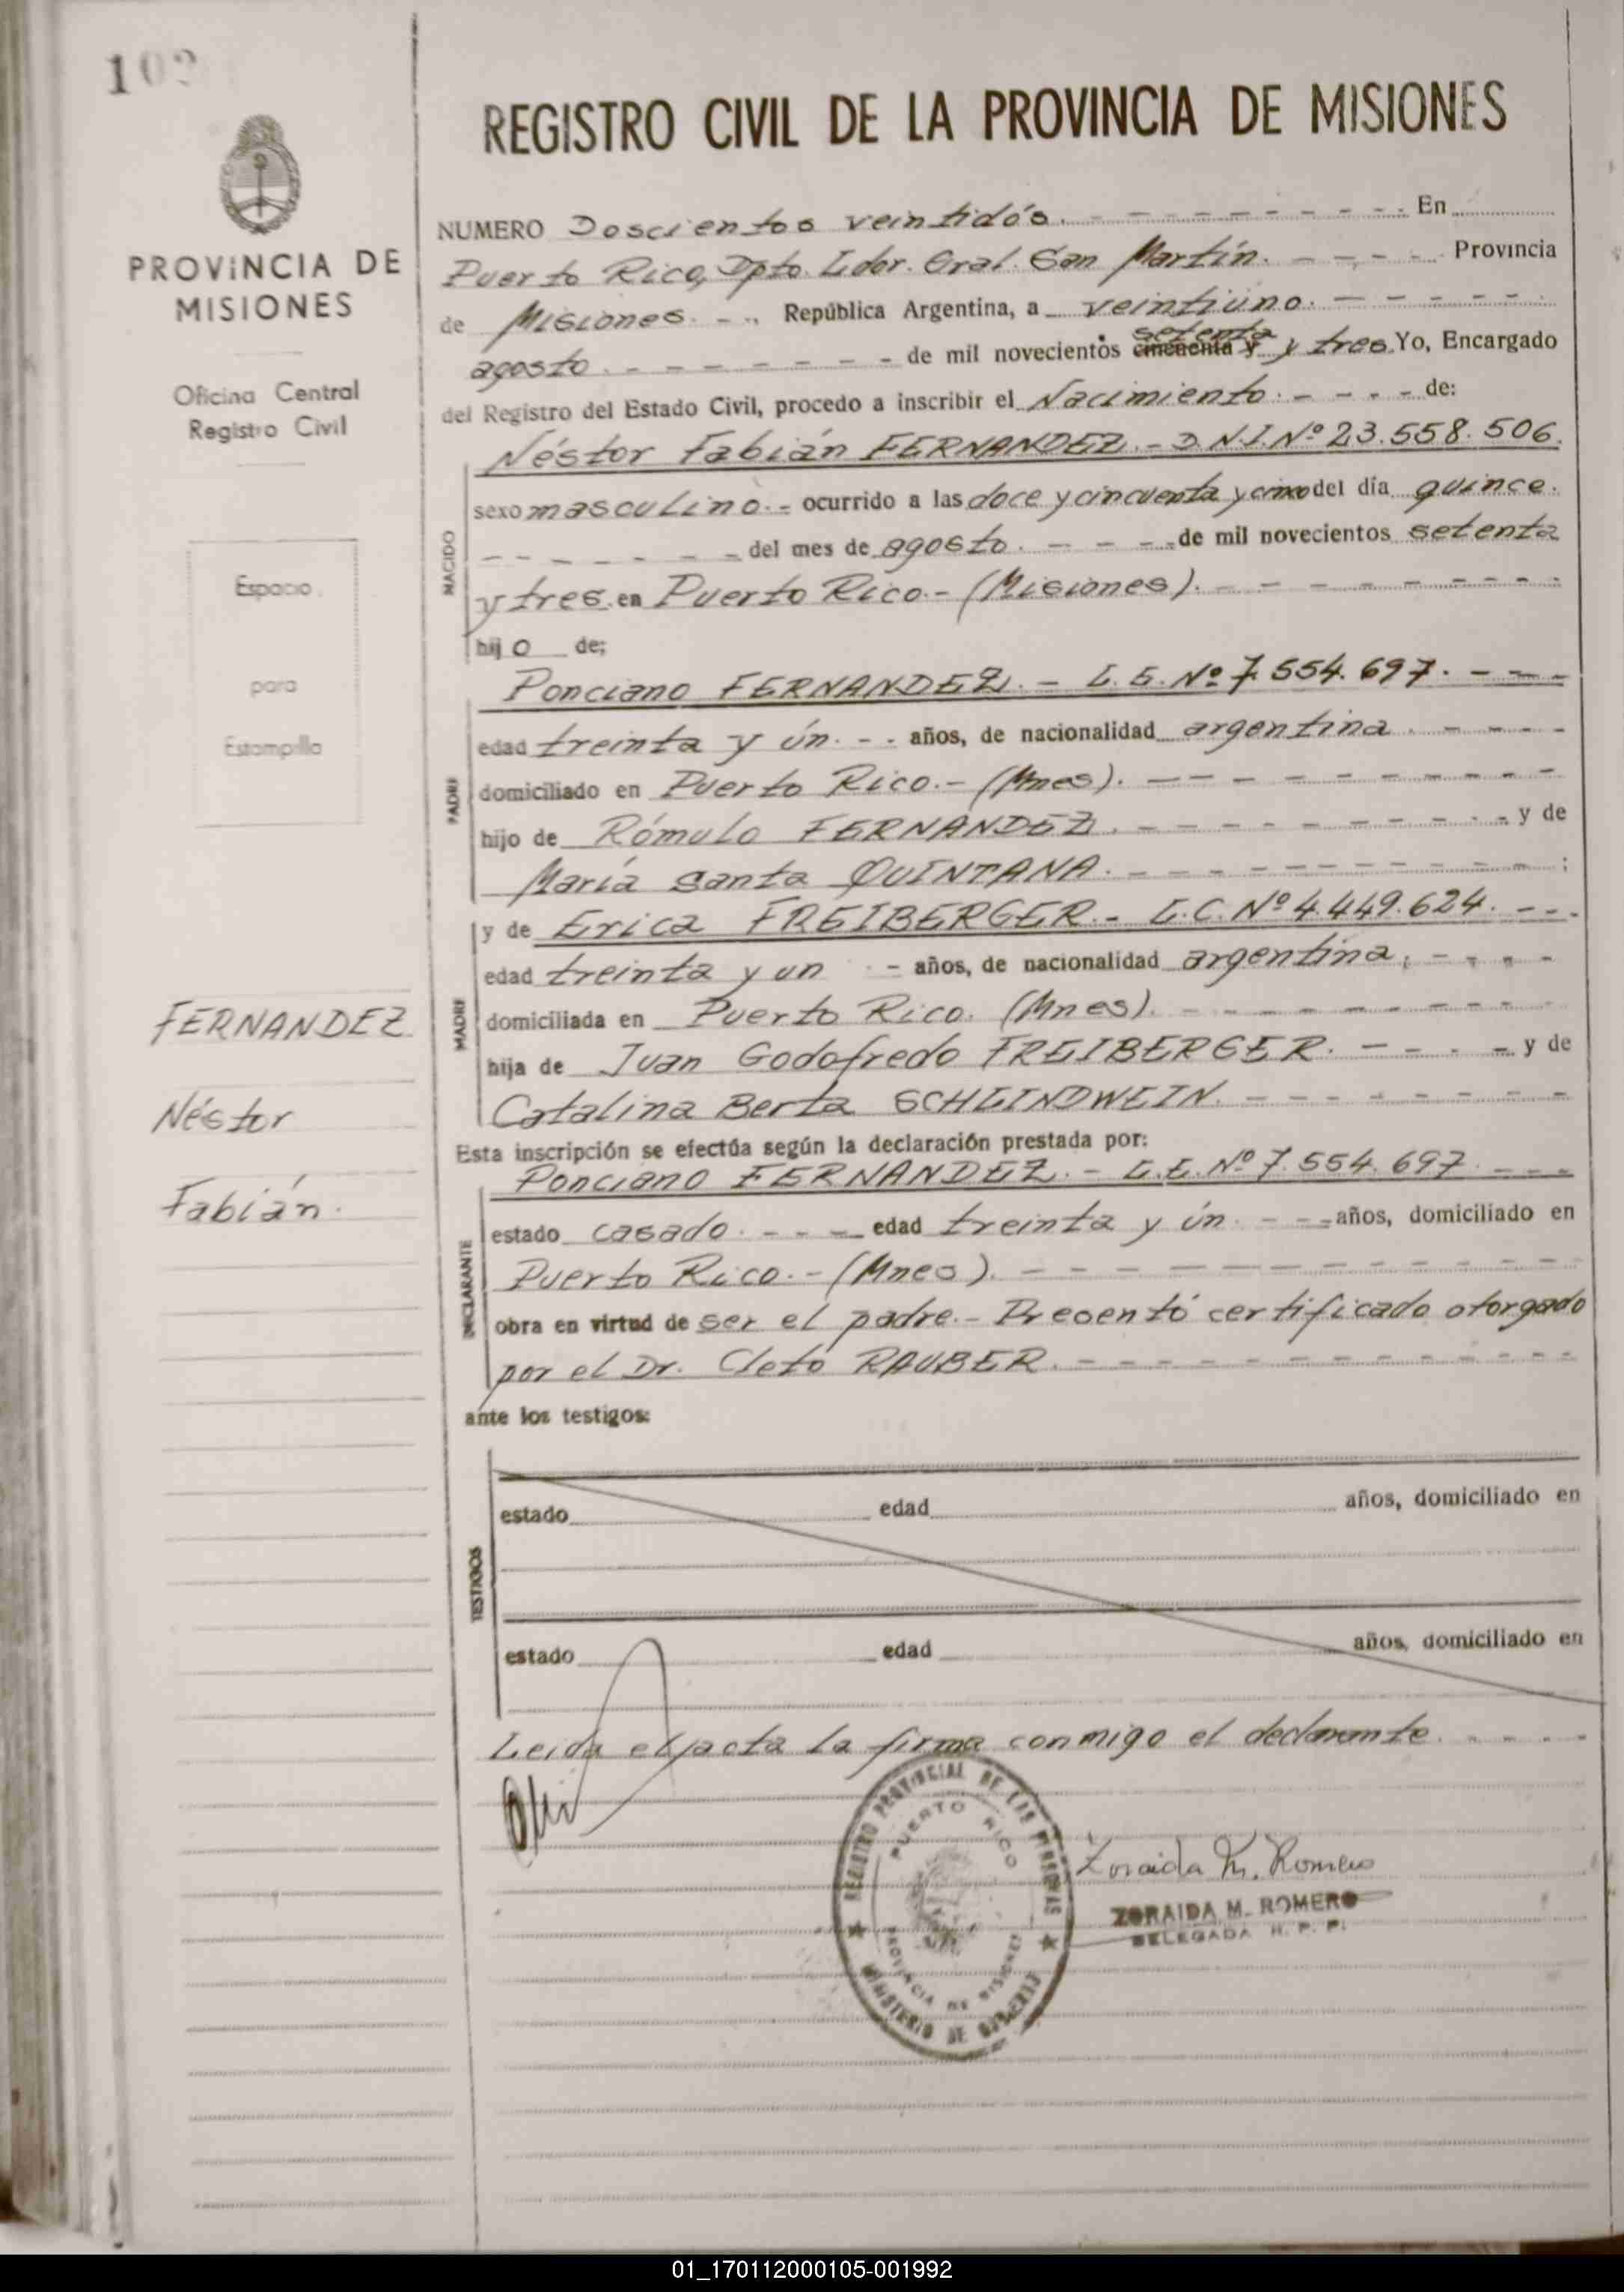 102
PROVINCIA DE
MISIONES
Oficina Central
Registro Civil
Espacio
para
Estampilla
FERNANDEZ
Néstor
Fabián.
REGISTRO CIVIL DE LA PROVINCIA DE MISIONES
NUMERO Doscientos veintidós. - - - - - - - - - En
Puerto Rico, Dpto. Ldor. Gral. San Martín. - - - - Provincia
de Misiones. - - República Argentina, a veintiuno. - - - - - -
agosto. - - - - - - - de mil novecientos cincuenta y setenta y tres Yo, Encargado
del Registro del Estado Civil, procedo a inscribir el Nacimiento. - - - - de:
Néstor Fabián FERNANDEZ. - D.N.I. Nº 23.558.506.
NACIDO
sexo masculino. - ocurrido a las doce y cincuenta y cinco del día quince.
- - - - - - - del mes de agosto. - - - - de mil novecientos setenta
y tres en Puerto Rico. - (Misiones). - - - - - - - - -
hijo de;
Ponciano FERNANDEZ. - L.E. Nº 7.554.697. - - -
PADRE
edad treinta y ún. - - años, de nacionalidad argentina. - - - -
domiciliado en Puerto Rico. - (Mnes). - - - - - - - - - -
hijo de Rómulo FERNANDEZ. - - - - - - - - - - y de
María Santa QUINTANA. - - - - - - - - - - - ;
y de Erica FREIBERGER. - L.C. Nº 4.449.624. - - -
MADRE
edad treinta y un - años, de nacionalidad argentina. - - - -
domiciliada en Puerto Rico. (Mnes). - - - - - - - - -
hija de Juan Godofredo FREIBERGER. - - - - y de
Catalina Berta SCHLINDWEIN. - - - - - - - -
Esta inscripción se efectúa según la declaración prestada por:
Ponciano FERNANDEZ. - L.E. Nº 7.554.697. - - -
DECLARANTE
estado casado. - - - edad treinta y ún. - - - años, domiciliado en
Puerto Rico. - (Mnes). - - - - - - - - - - - -
obra en virtud de ser el padre. - Presentó certificado otorgado
por el Dr. Cleto RAUBER. - - - - - - - - - - - -
ante los testigos:
TESTIGOS
estado edad años, domiciliado en
estado edad años, domiciliado en
Leida el acta la firma conmigo el declarante. - - - -
REGISTRO PROVINCIAL DE LAS PERSONAS
PUERTO RICO
PROVINCIA DE MISIONES
MINISTERIO DE GOBIERNO
Zoraida M. Romero
ZORAIDA M. ROMERO
DELEGADA R. P. P.
01_170112000105-001992